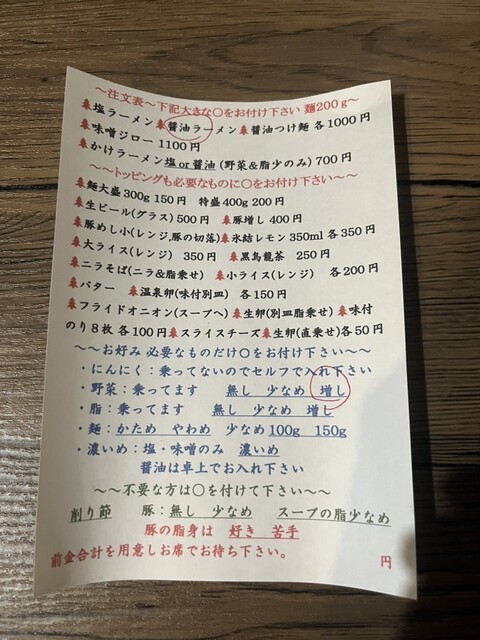 ～注文表～下記大きな〇をお付け下さい 麺200g～
塩ラーメン 醤油ラーメン 醤油つけ麺 各1000円
味噌ジロー 1100円
かけラーメン塩or醤油(野菜&脂少のみ) 700円
～～トッピングも必要なものに〇をお付け下さい～～
麺大盛300g 150円 特盛400g 200円
生ビール(グラス) 500円 豚増し 400円
豚めし小(レンジ,豚の切落) 氷結レモン 350ml 各350円
大ライス(レンジ) 350円 黒烏龍茶 250円
ニラそば(ニラ&脂乗せ) 小ライス(レンジ) 各200円
バター 温泉卵(味付別皿) 各150円
フライドオニオン(スープへ) 生卵(別皿脂乗せ) 味付
のり8枚 各100円 スライスチーズ 生卵(直乗せ)各50円
～～お好み 必要なものだけ〇をお付け下さい～～
・にんにく：乗ってないのでセルフで入れ下さい
・野菜：乗ってます 無し 少なめ 増し
・脂：乗ってます 無し 少なめ 増し
・麺：かため やわめ 少なめ100g 150g
・濃いめ：塩・味噌のみ 濃いめ
醤油は卓上でお入れ下さい
～～不要な方は〇を付けて下さい～～
削り節 豚：無し 少なめ スープの脂少なめ
豚の脂身は 好き 苦手
前金合計を用意しお席でお待ち下さい。 円